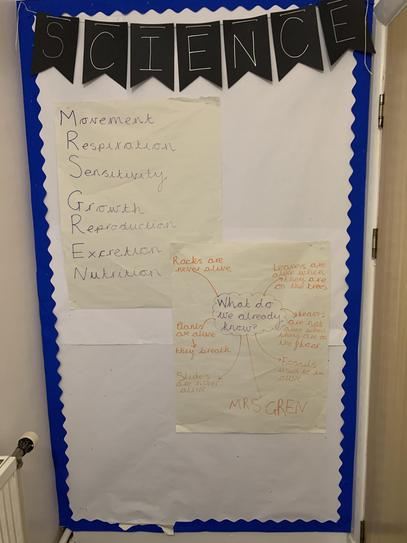 SCIENCE
Movement
Respiration
Sensitivity
Growth
Reproduction
Excretion
Nutrition
What do
we already
know?
Rocks are
never alive
Leaves are
alive when
they are
on the trees
Leaves
are not
alive when
they are on
the floor
Plants
are alive
they breath
Fossils
used to be
alive
Slides
are never
alive
MRS GREN